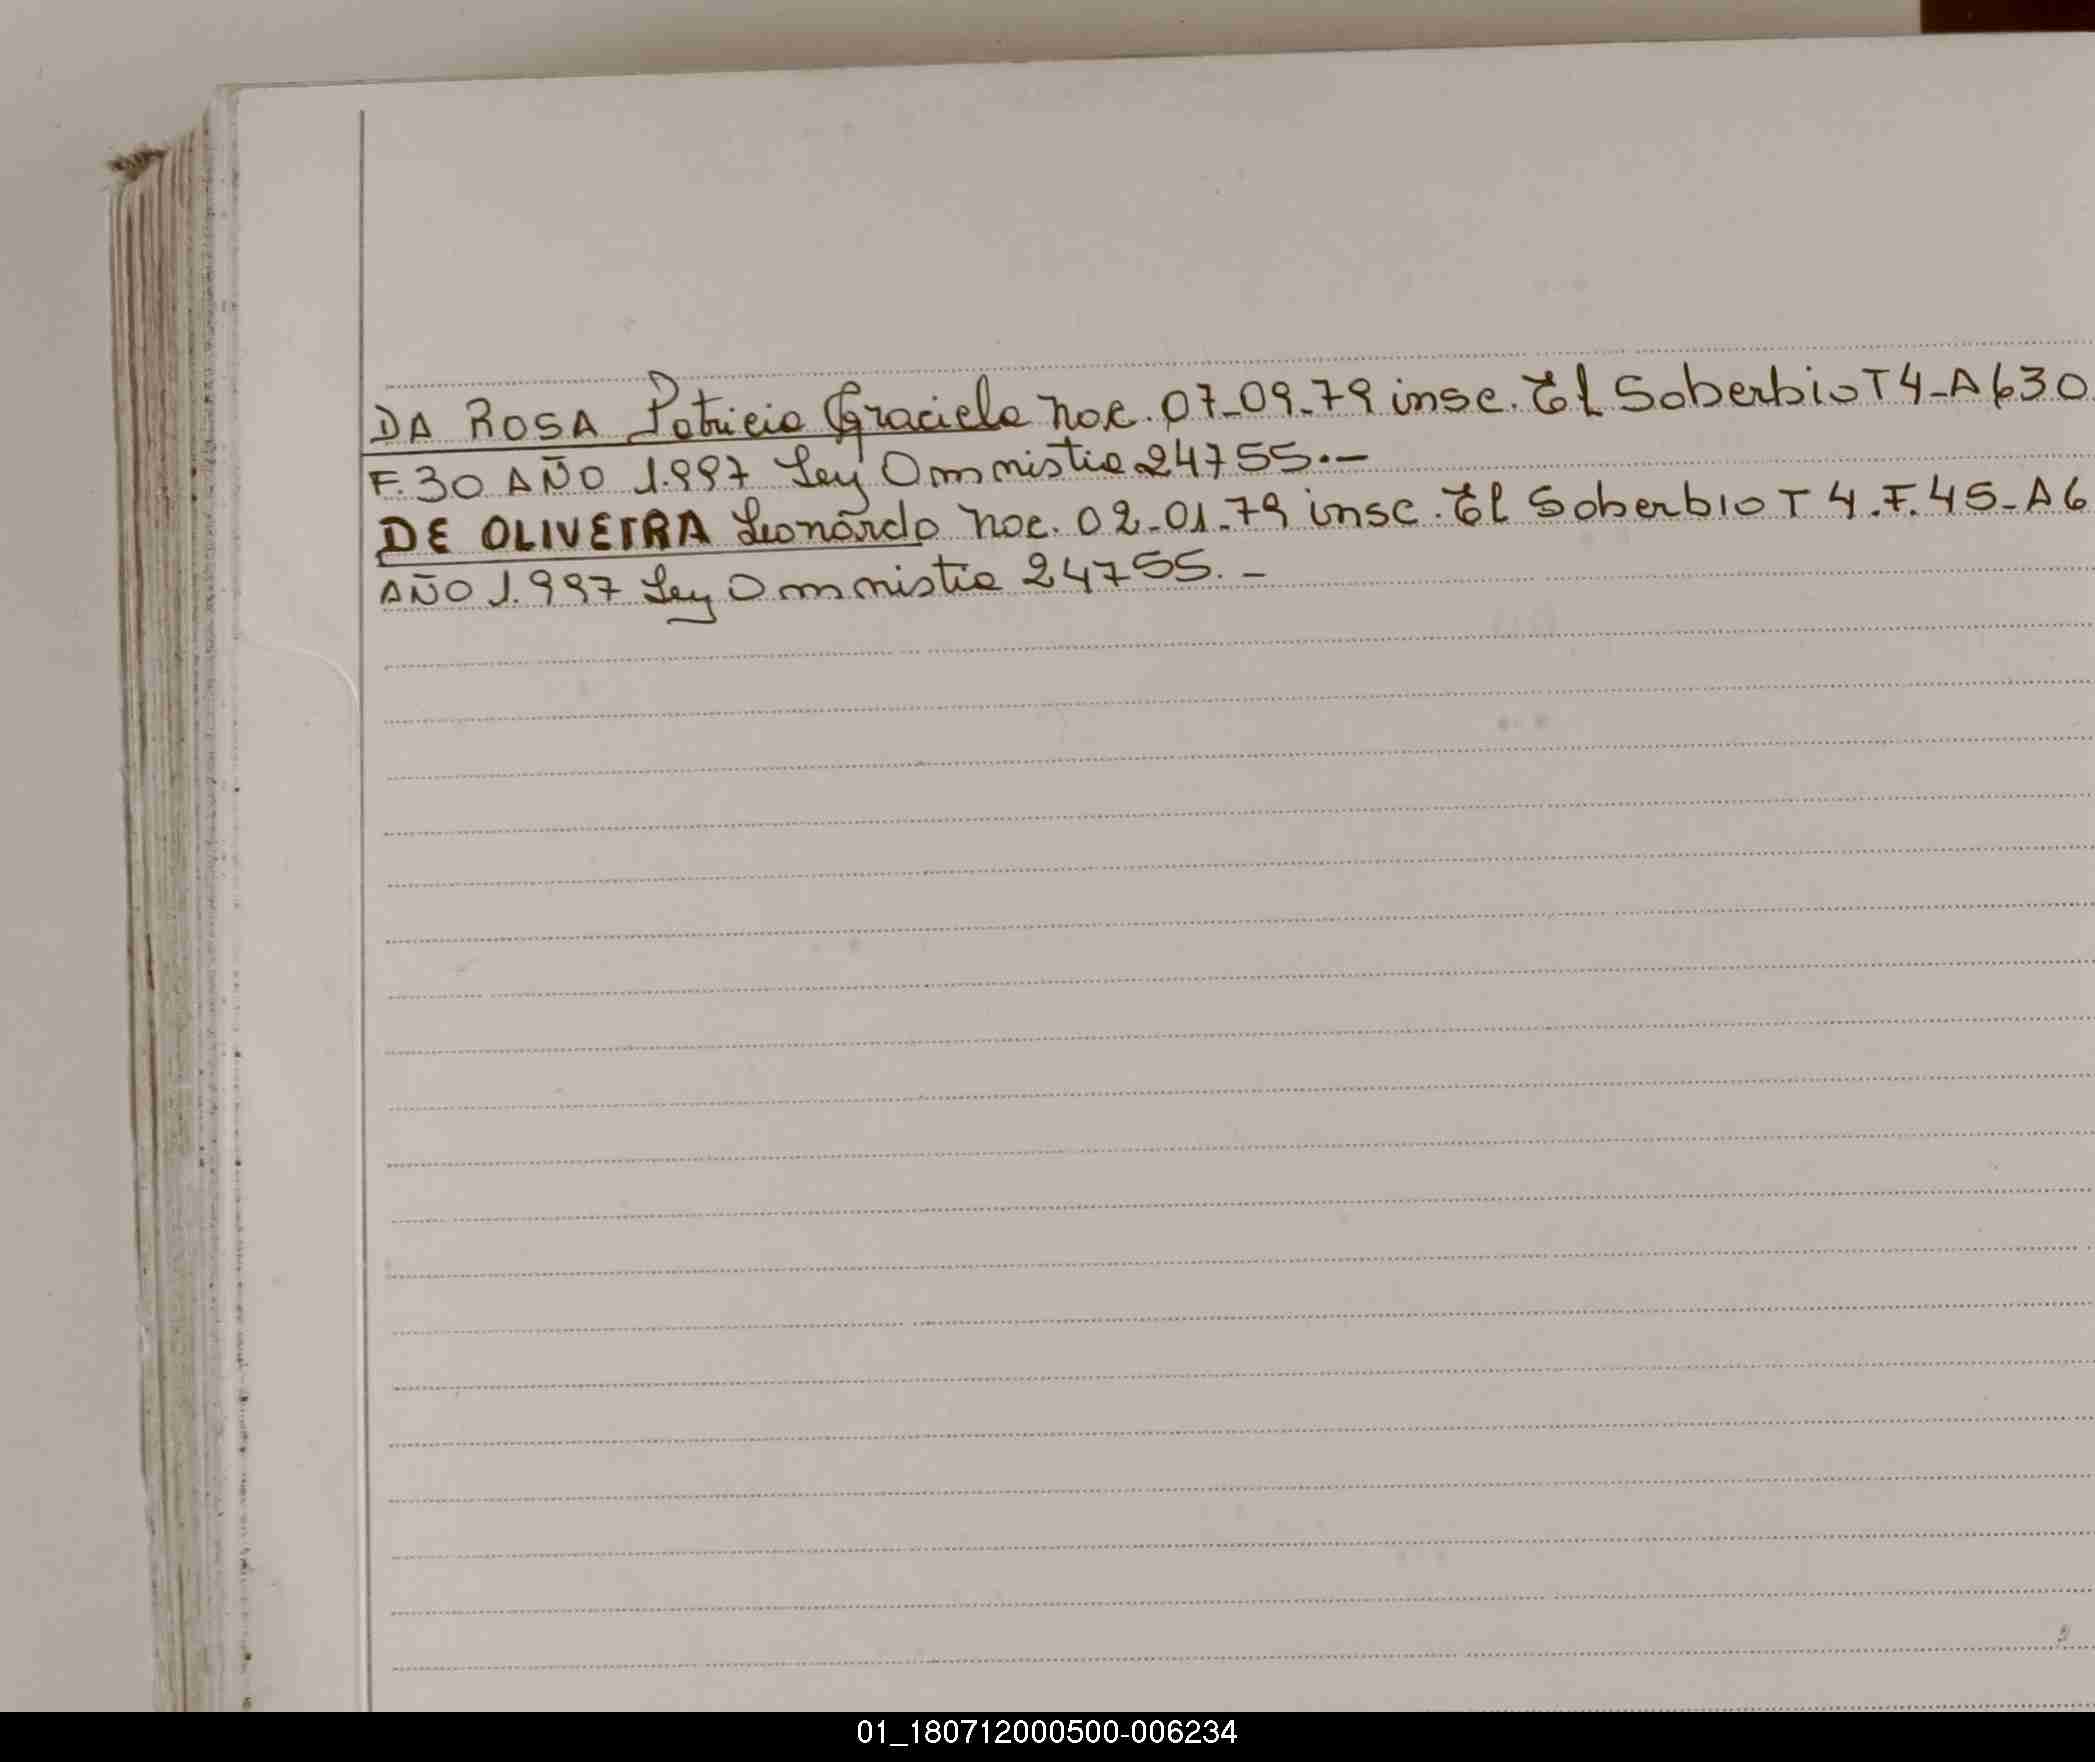 DA ROSA Patricia Graciela nac. 07-09-79 insc. El Soberbio T4-A630
F.30 AÑO 1.997 Ley Amnistia 24755.-
DE OLIVEIRA Leonardo nac. 02-01-79 insc. El Soberbio T4.F.45-A6
AÑO 1.997 Ley Amnistia 24755.-
01_180712000500-006234